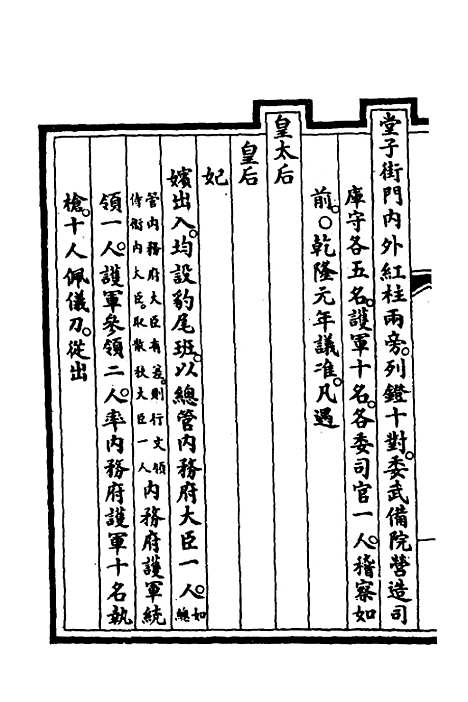 堂子街門內外紅柱兩旁。列鐙十對。委武備院營造司
庫守各五名。護軍十名。各委司官一人。稽察如
前。○乾隆元年議准。凡遇
皇太后
皇后
妃
嬪出入。均設豹尾班。以總管內務府大臣一人。如總
管內務府大臣有差。則行文領
侍衞內大臣。取散秩大臣一人內務府護軍統
領一人。護軍參領二人。率內務府護軍十名執
槍。十人佩儀刀。從出